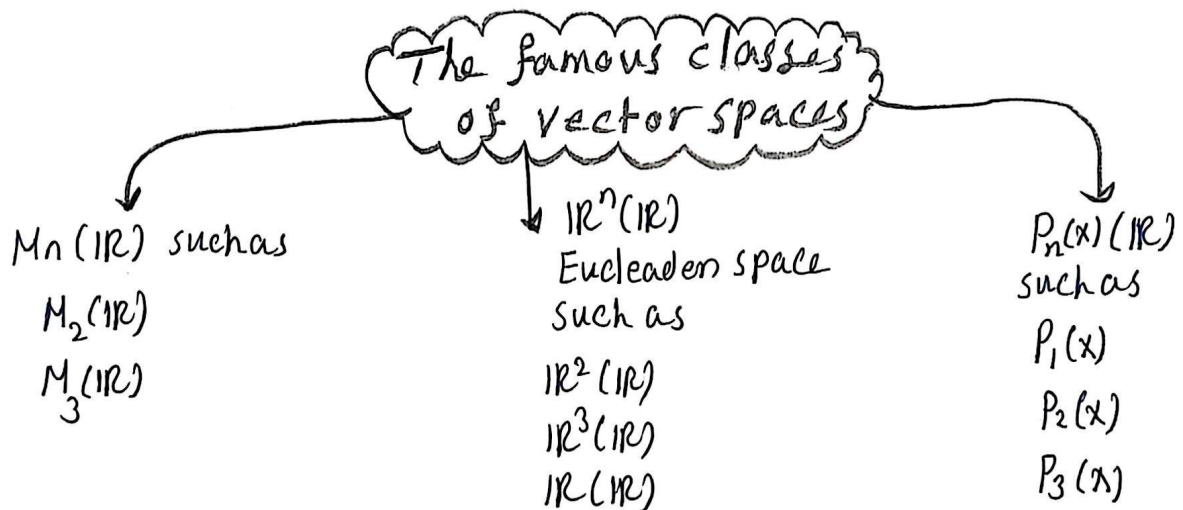 The famous classes
of vector spaces
Mn(IR) such as
M₂(IR)
M₃(IR)
IRⁿ(IR)
Eucleaden space
such as
IR²(IR)
IR³(IR)
IR(IR)
Pₙ(x)(IR)
such as
P₁(x)
P₂(x)
P₃(x)